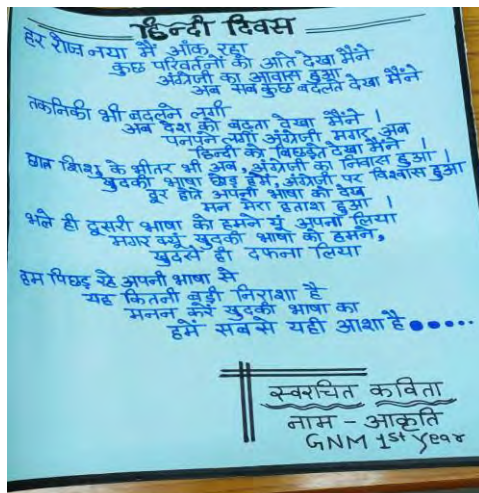 हिन्दी दिवस
हर रोज नया मैं आँक रहा
कुछ परिवर्तनों को आते देखा मैंने
अंग्रेजी का आवास हुआ
अब सब कुछ बदलते देखा मैंने
तकनिकी भी बदलने लगी
अब देश को बढ़ता देखा मैंने ।
पनपने लगी अंग्रेजी मगर अब
हिन्दी को बिछड़ते देखा मैंने ।
छात्र शिशु के भीतर भी अब, अंग्रेजी का निवास हुआ ।
खुदकी भाषा छोड़ हमें, अंग्रेजी पर विश्वास हुआ
दूर होते अपनी भाषा को देख
मन मेरा हताश हुआ ।
भले ही दुसरी भाषा को हमने यूं अपना लिया
मगर क्यूं खुदकी भाषा को हमने,
खुदसे ही दफना लिया
हम पिछड़ रहे अपनी भाषा से
यह कितनी बड़ी निराशा है
मनन करें खुदकी भाषा का
हमें सबसे यही आशा है .....
स्वरचित कविता
नाम - आकृति
GNM 1st year